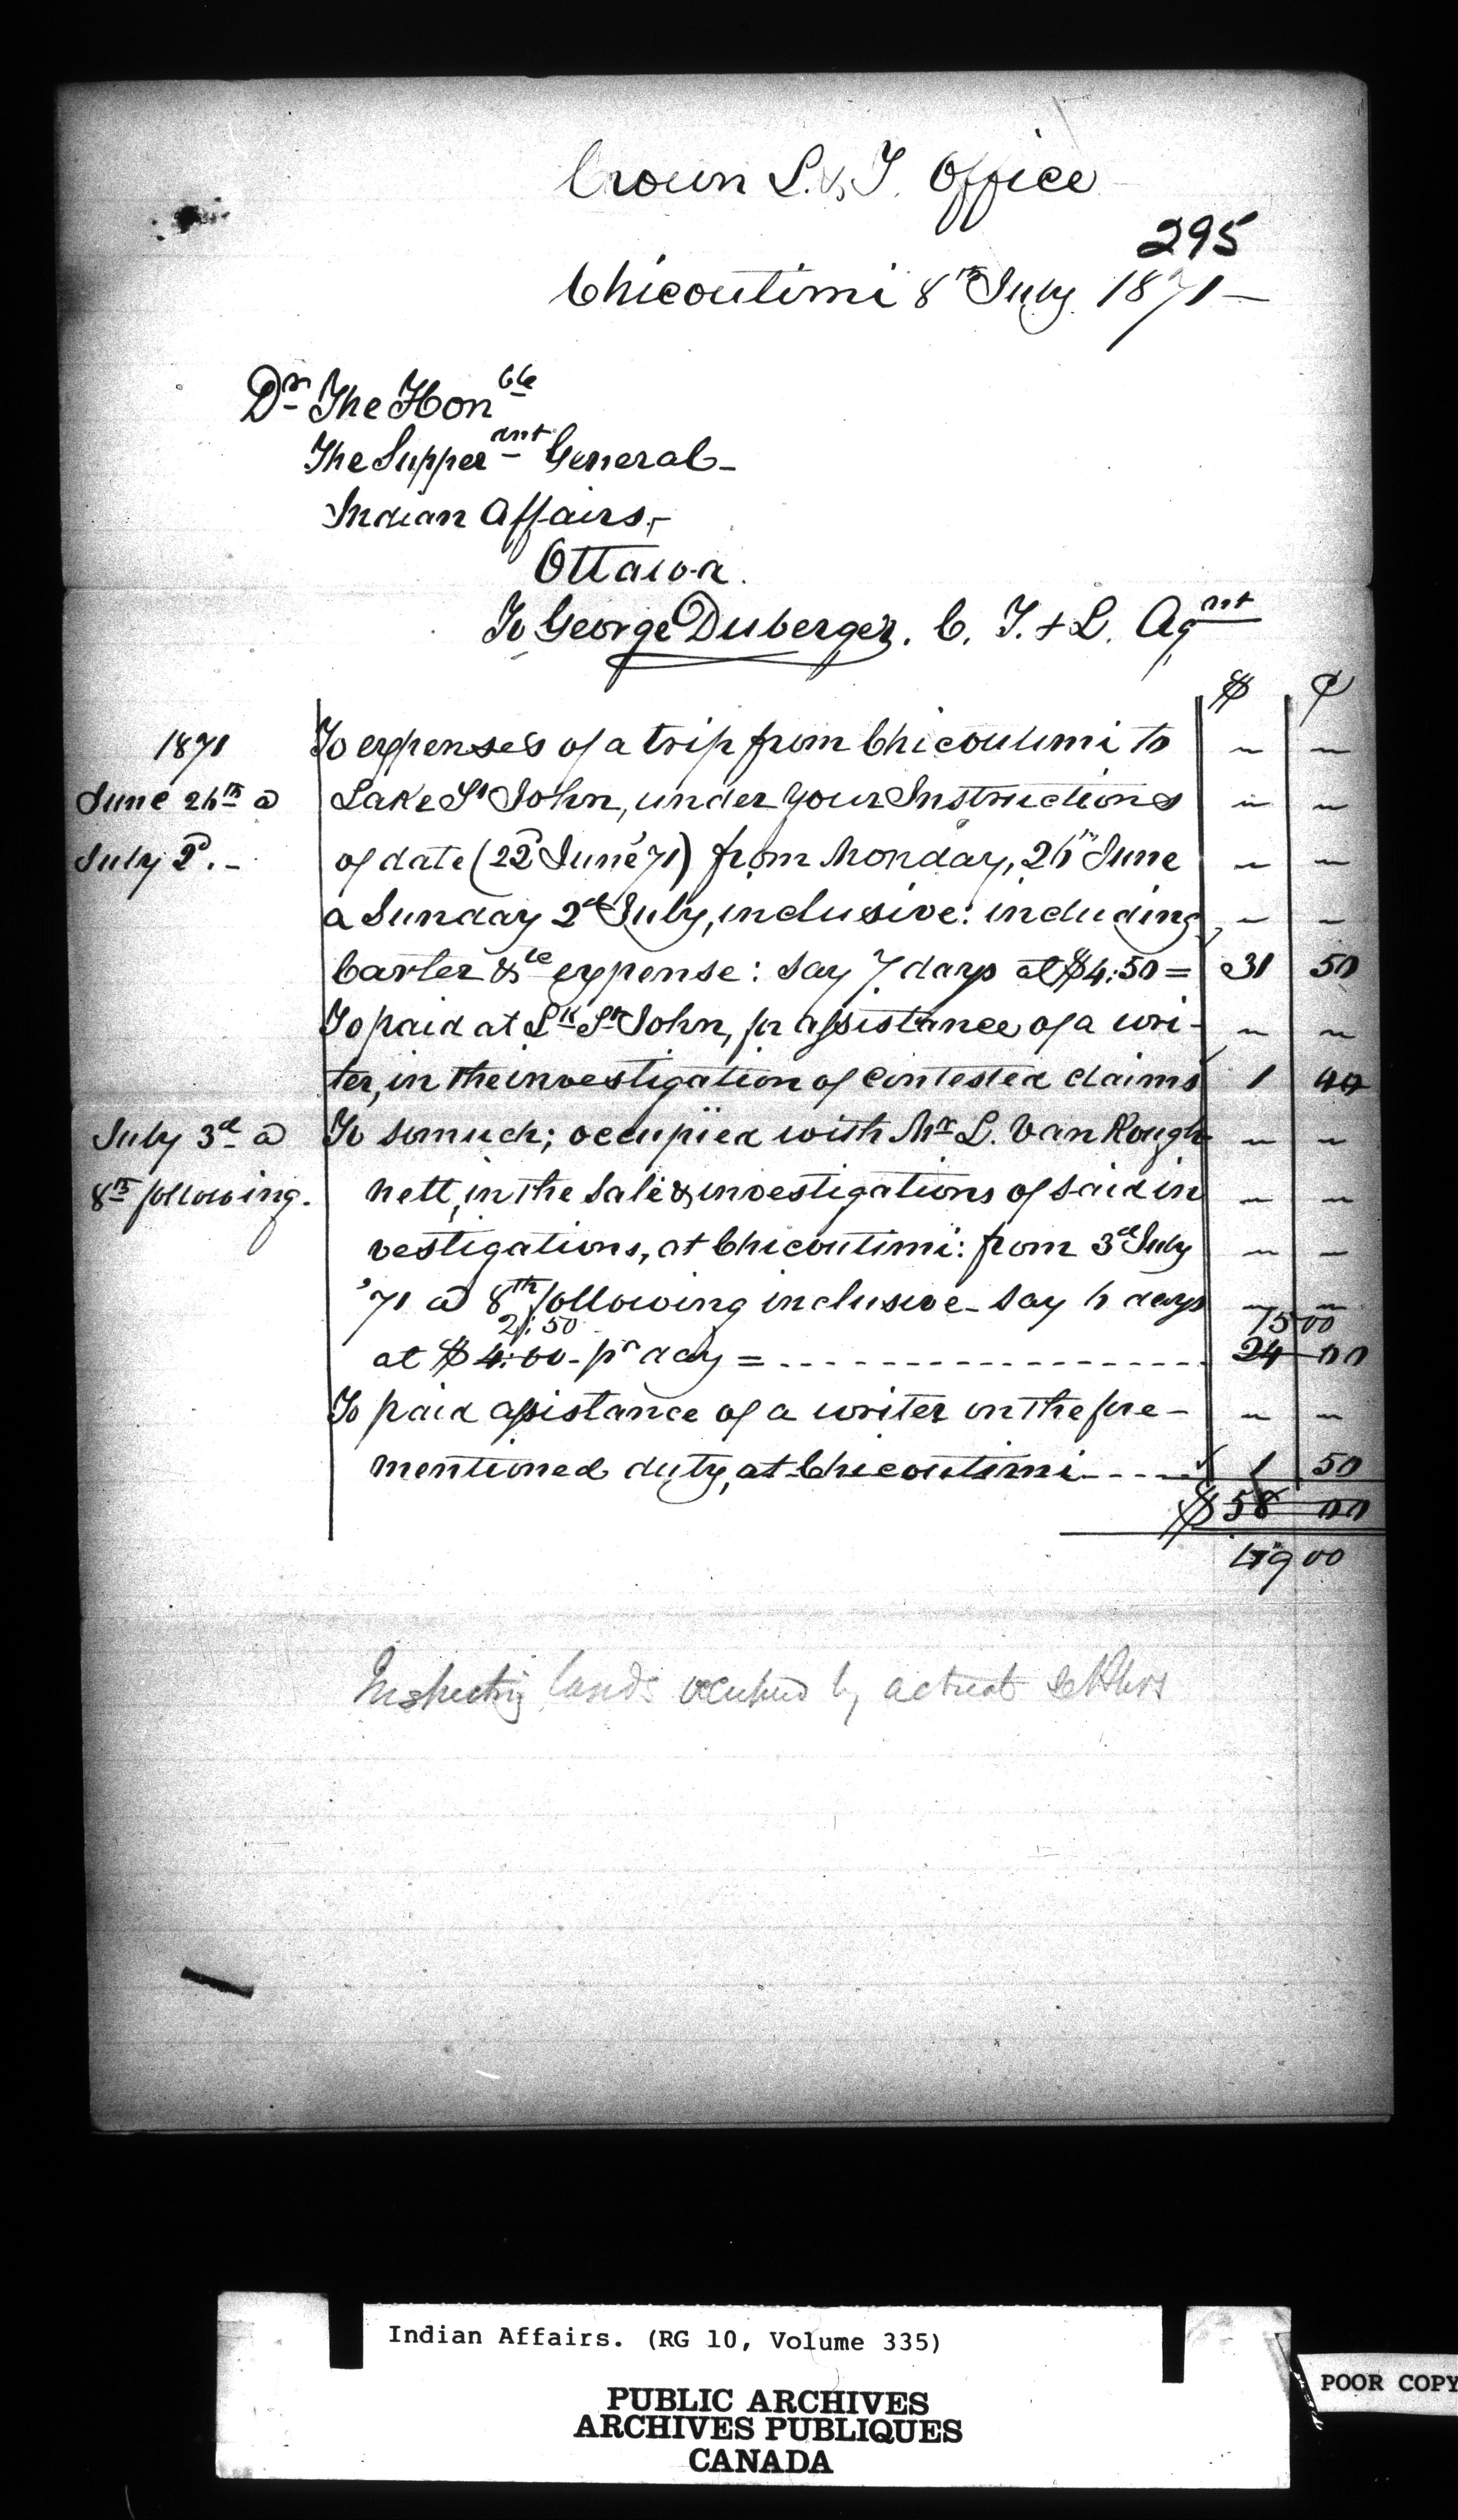 Crown L. & T. Office
295
Chicoutimi 8th July 1871 —
Dr The Honble
The Supperant General —
Indian Affairs,
Ottawa.
To George Duberger. C. T. & L. Agnt
$ ¢
1871 To expenses of a trip from Chicoutimi to
June 26th @ Lake St John, under your Instructions
July 2d. — of date (22d June '71) from Monday, 26th June
a Sunday 2d July, inclusive: including
Carter &ce expense: say 7 days at $4:50 = 31 50
To paid at Lk St John, pr assistance of a wri-
ter, in the investigation of contested claims 1
July 3d @ To somuch; occupied with Mr L. Van Kough-
8th following. nett, in the Sale & investigations of said in
vestigations, at Chicoutimi: from 3d July
'71 @ 8th following inclusive — say 6 days
2: 50 15 00
at $ 4:00 — pr day = 24 00
To paid assistance of a writer in the pre-
mentioned duty, at Chicoutimi 1 50
$ 58 00
49 00
Inspecting lands occupied by actual settlers
Indian Affairs. (RG 10, Volume 335)
PUBLIC ARCHIVES
ARCHIVES PUBLIQUES
CANADA
POOR COPY